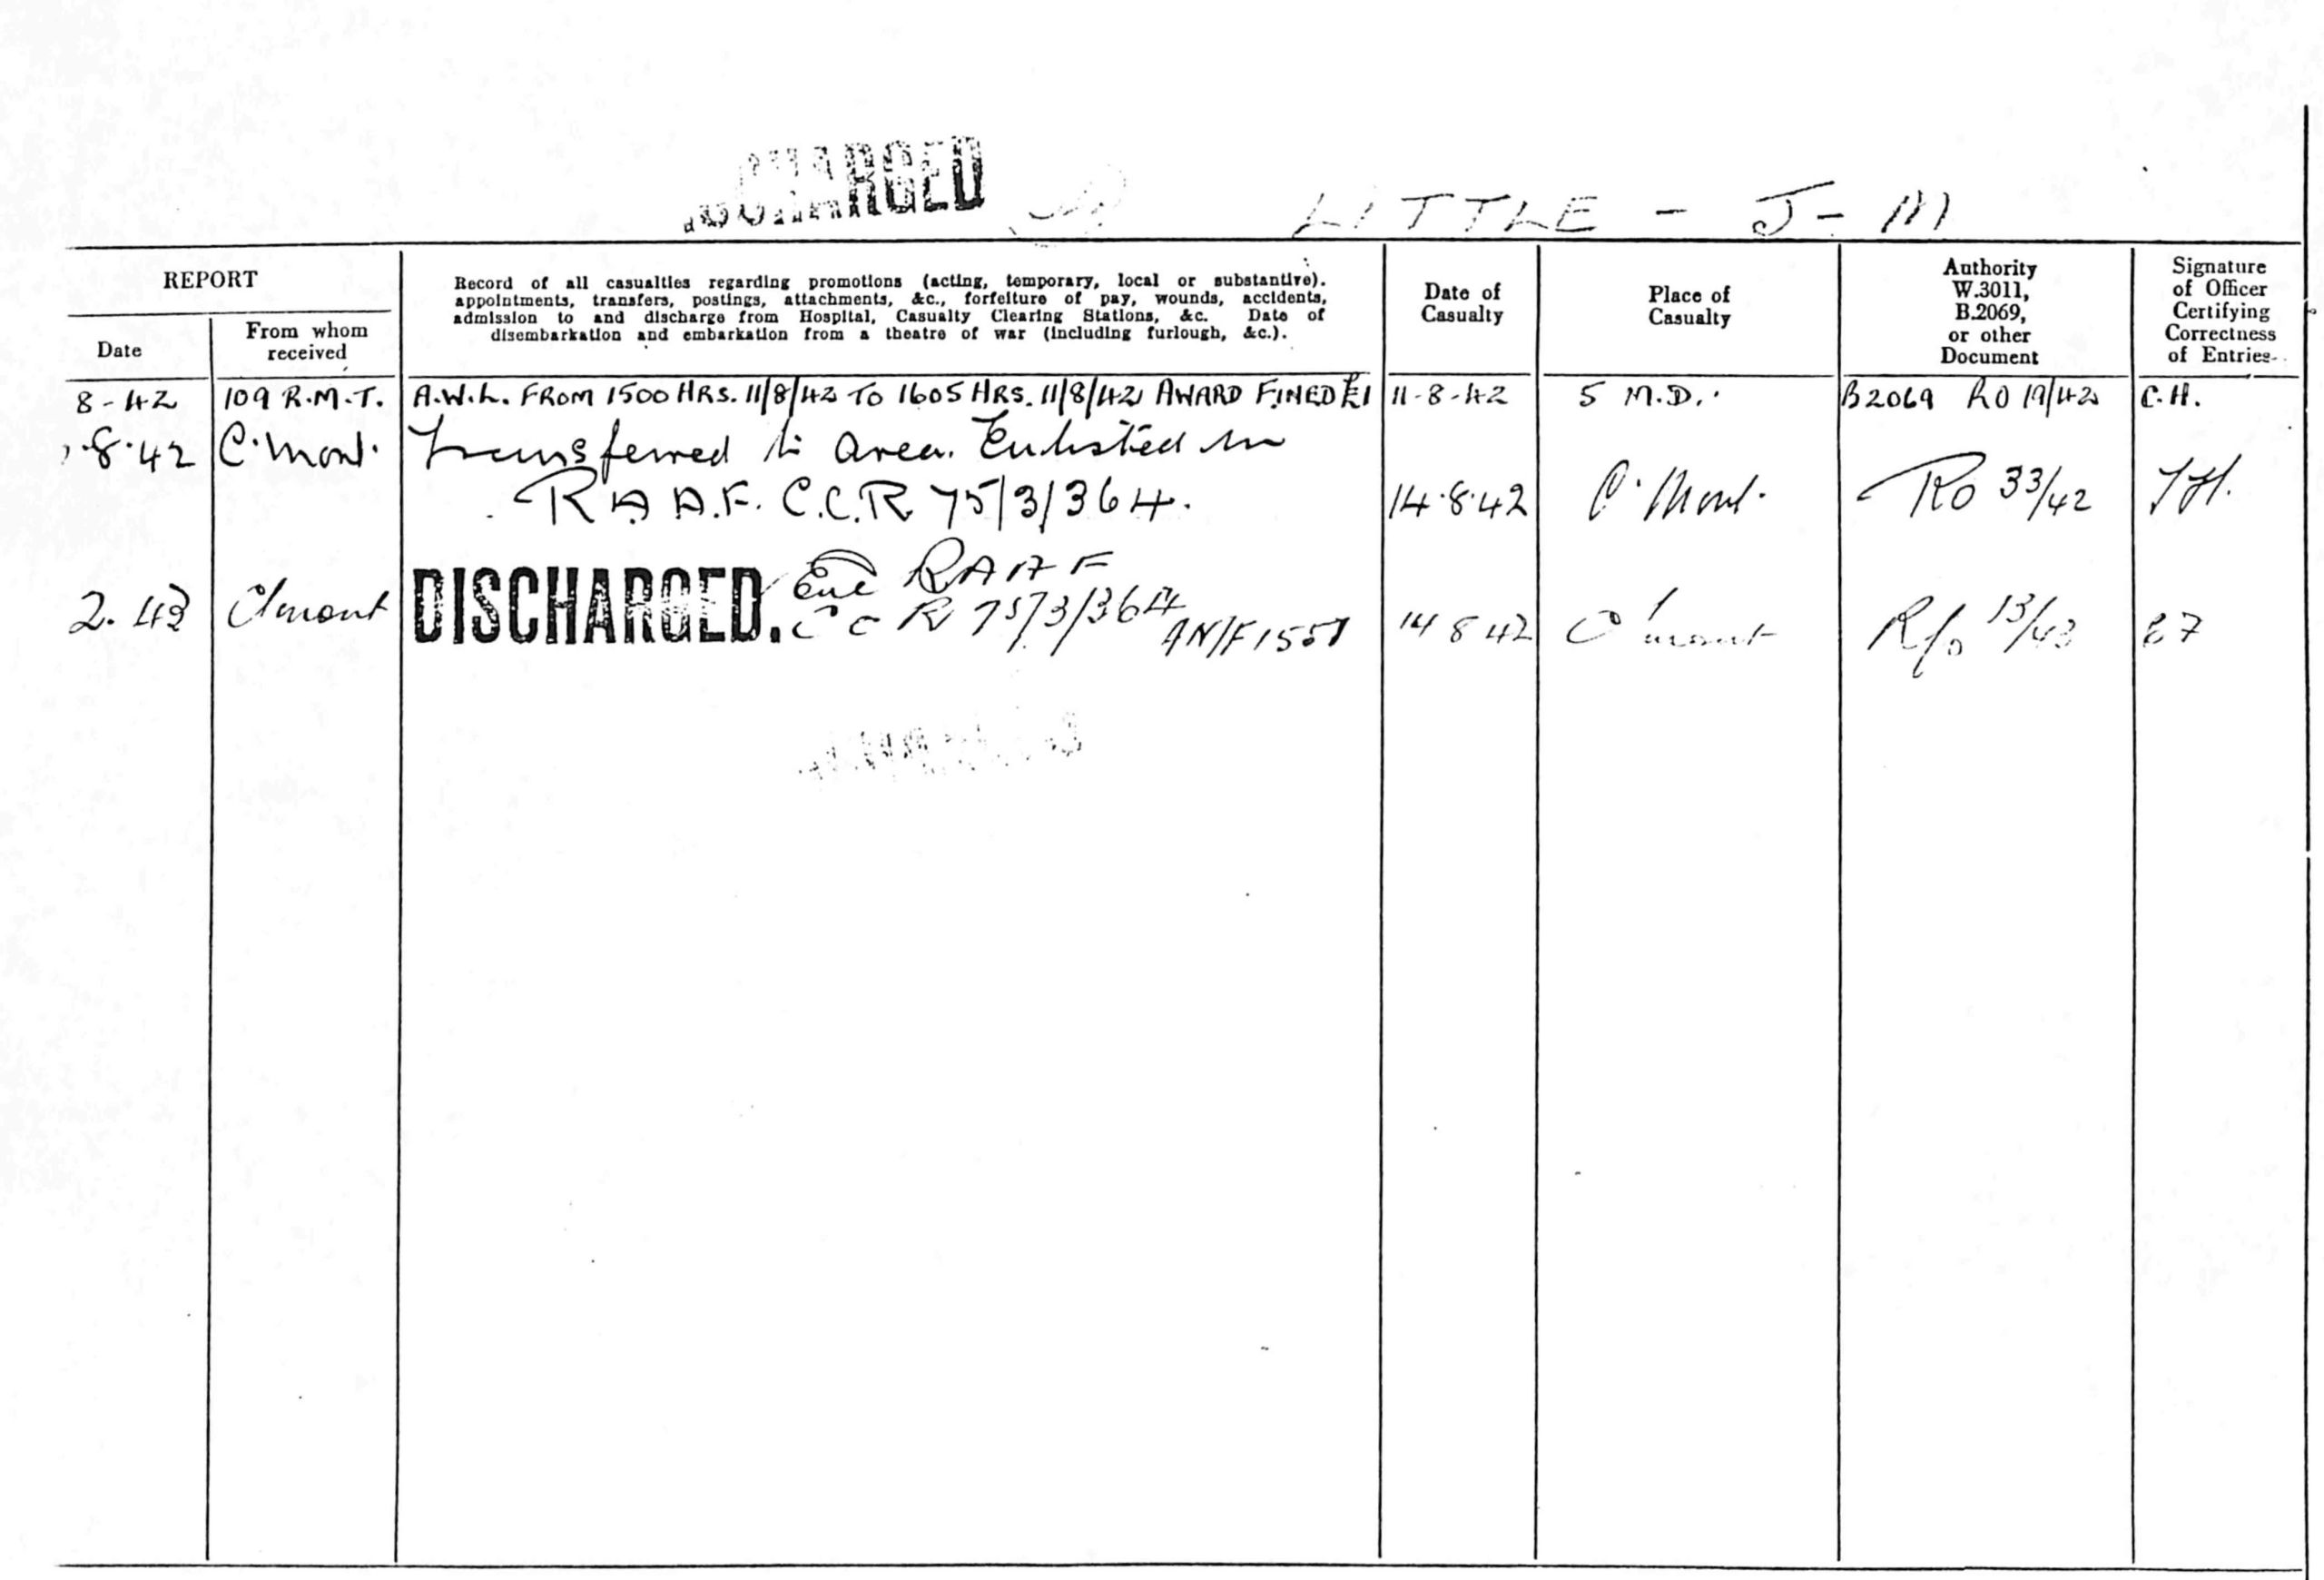 DISCHARGED
LITTLE - J - M
REPORT
Date
From whom
received
Record of all casualties regarding promotions (acting, temporary, local or substantive).
appointments, transfers, postings, attachments, &c., forfeiture of pay, wounds, accidents,
admission to and discharge from Hospital, Casualty Clearing Stations, &c. Date of
disembarkation and embarkation from a theatre of war (including furlough, &c.).
Date of
Casualty
Place of
Casualty
Authority
W.3011,
B.2069,
or other
Document
Signature
of Officer
Certifying
Correctness
of Entries
8-42 109 R.M.T. A.W.L. FROM 1500 HRS. 11/8/42 TO 1605 HRS. 11/8/42 AWARD FINED £1 11-8-42 5 M.D. B2069 RO 19/42 C.H.
8.42 C.Mont. Transferred to Area. Enlisted in
RAA.F. C.C.R 75/3/364. 14.8.42 C.Mont. RO 33/42
DISCHARGED. RAAF
2.43 C'mont CCR 75/3/364 14 8 42 C'mont R/o 13/43
AN/F1551